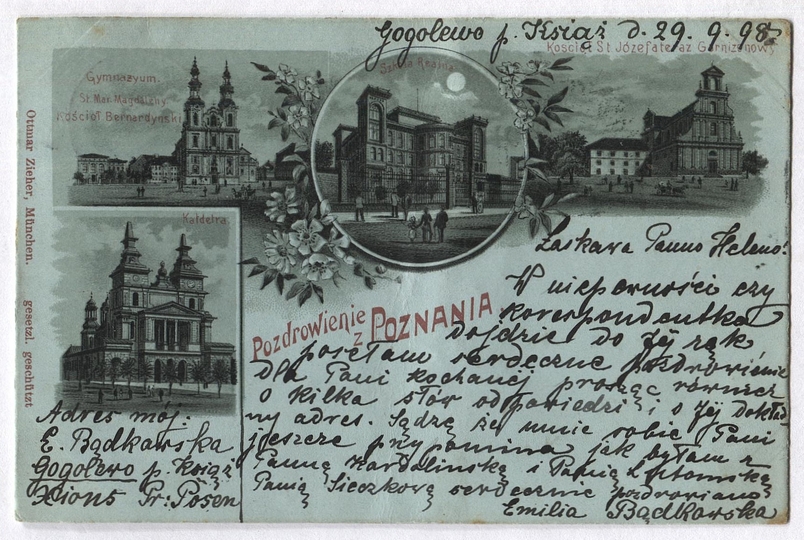 Gogolewo p. Książ d. 29. 9. 98.
Gymnazyum.
St. Mar. Magdaleny
Kościoł Bernardyński
Szkoła Realna
Kościoł St Józefa teraz Garnizonowy
Katdetra
Ottmar Zieher, München. gesetzl. geschützt
Pozdrowienie
z POZNANIA
Łaskawa Panno Heleno!
W niepewności czy
korespondentka
dojdzie do Jej rąk
posełam serdeczne pozdrowienie
dla Pani kochanej prosząc również
o kilka słów odpowiedzi i o Jej dokład
ny adres. Sądzę że mnie sobie Pani
jeszcze przypomina jak byłam z
Panną Kardolinską i Panią
Panią Sieczkową serdecznie pozdrowiano
Emilia Bądkowska
Adres mój:
E. Bądkowska
Gogolewo p. Książ
Xions Pr: Posen